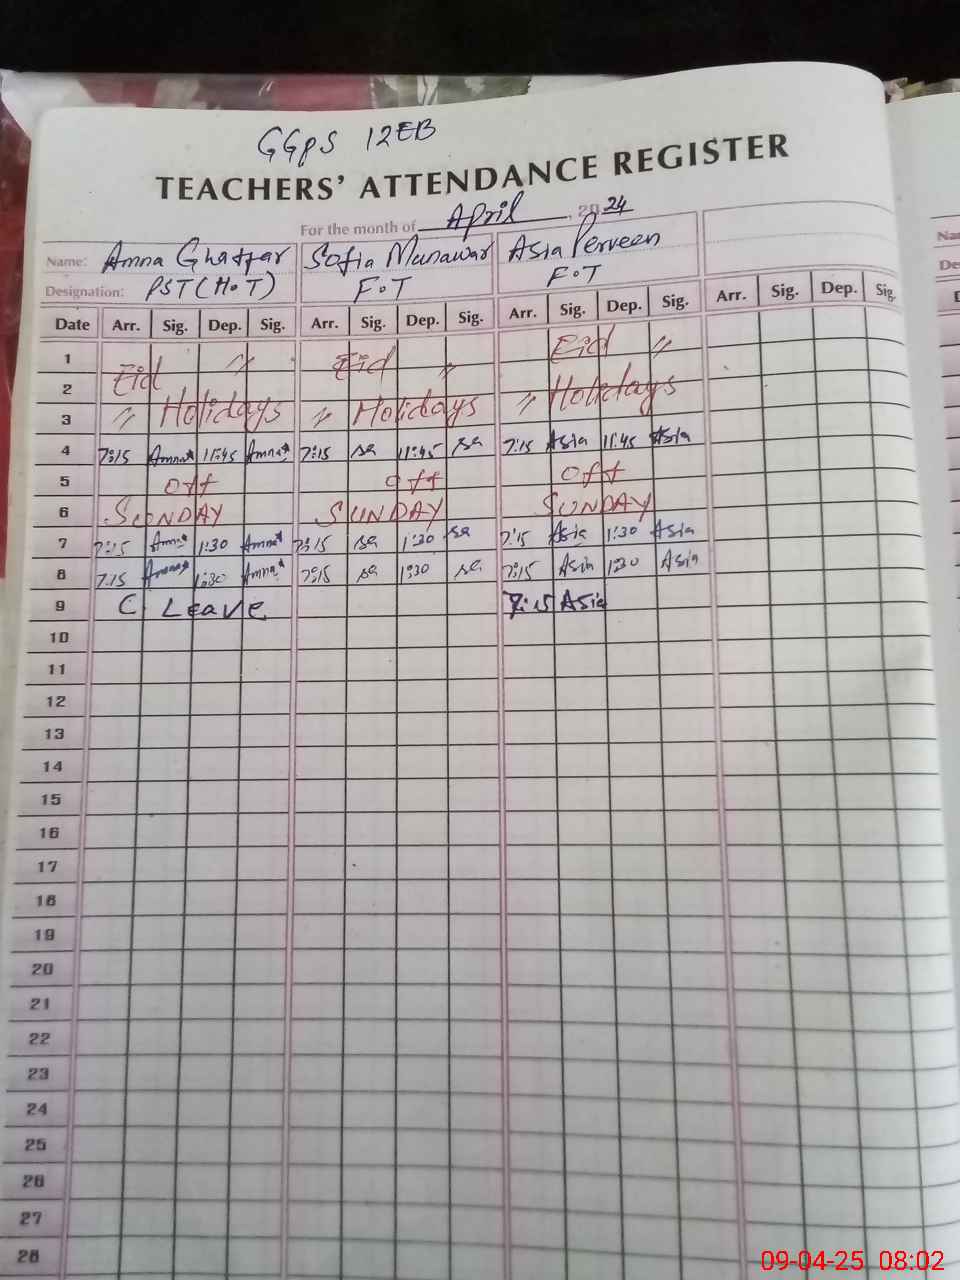 GGPS 12EB
TEACHERS' ATTENDANCE REGISTER
For the month of April, 2024
Name: Amna Ghaffar Sofia Munawar Asia Perveen
Designation: PST (H.T) F.T F.T
Date Arr. Sig. Dep. Sig. Arr. Sig. Dep. Sig. Arr. Sig. Dep. Sig. Arr. Sig. Dep. Sig.
1 Eid " Eid " Eid "
2
3 " Holidays " Holidays " Holidays
4 7:15 Amna 11:45 Amna 7:15 sa 11:45 sa 7:15 Asia 11:45 Asia
5 off off off
6 SUNDAY SUNDAY SUNDAY
7 7:15 Amna 1:30 Amna 7:15 sa 1:30 sa 7:15 Asia 1:30 Asia
8 7:15 Amna 1:30 Amna 7:15 sa 1:30 sa 7:15 Asia 1:30 Asia
9 C Leave 7:15 Asia
10
11
12
13
14
15
16
17
18
19
20
21
22
23
24
25
26
27
28
09-04-25 08:02